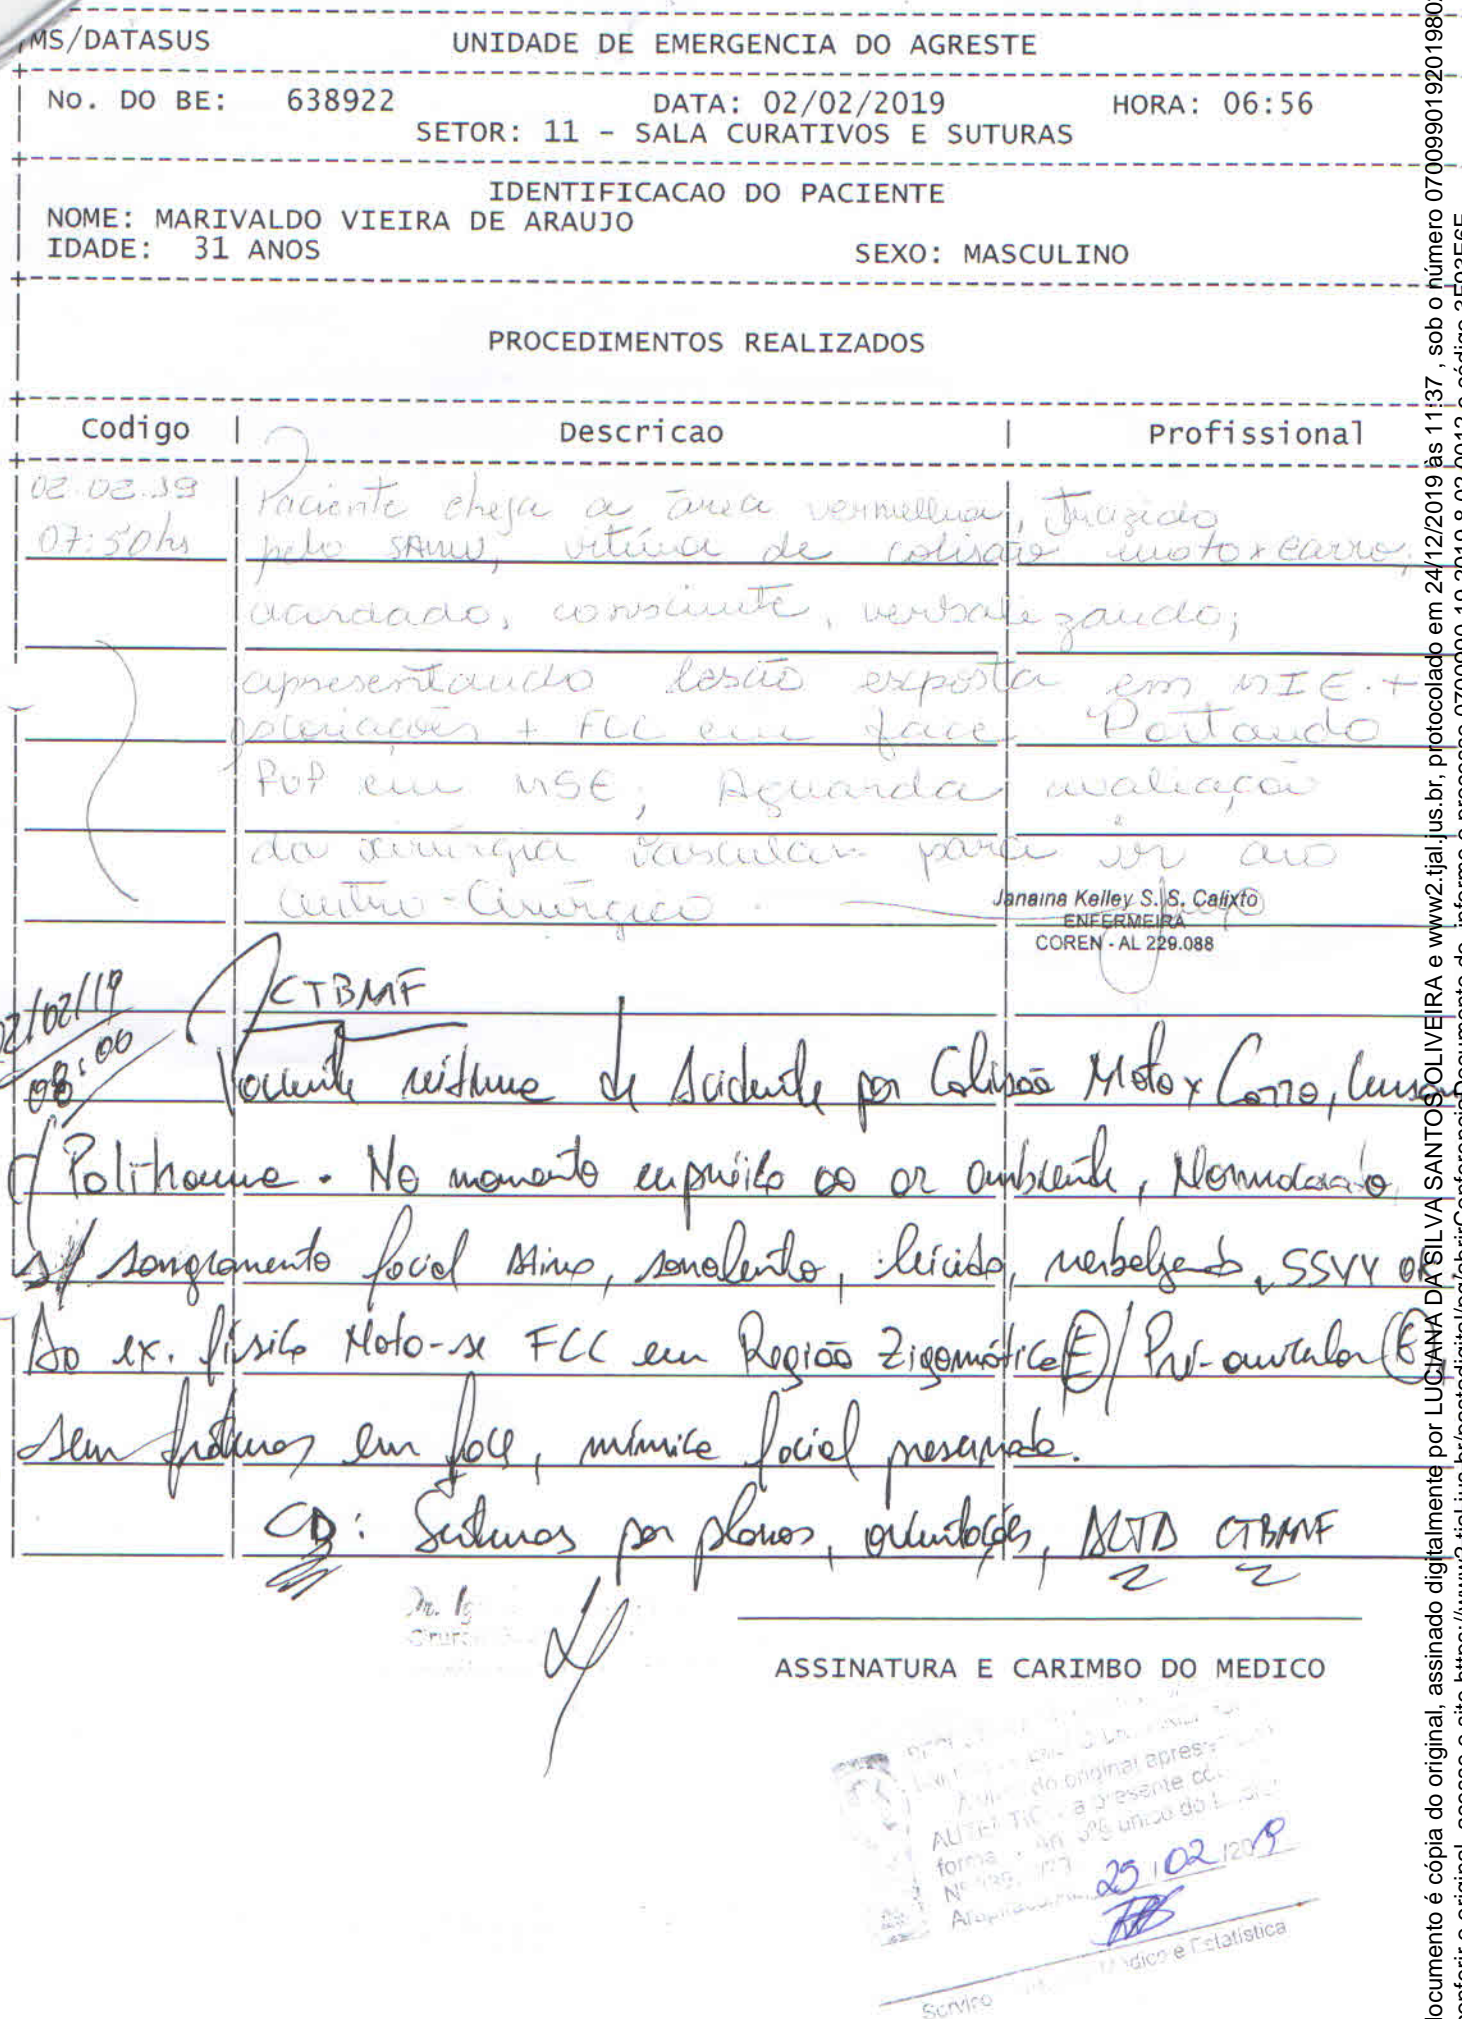 MS/DATASUS UNIDADE DE EMERGENCIA DO AGRESTE
No. DO BE: 638922 DATA: 02/02/2019 HORA: 06:56
SETOR: 11 - SALA CURATIVOS E SUTURAS
IDENTIFICACAO DO PACIENTE
NOME: MARIVALDO VIEIRA DE ARAUJO
IDADE: 31 ANOS SEXO: MASCULINO
PROCEDIMENTOS REALIZADOS
Codigo Descricao Profissional
02.02.19 Paciente chega a área vermelha, trazido
07:50hs pelo SAMU, vítima de colisão moto x carro,
acordado, consciente, verbalizando;
apresentando lesão exposta em MIE. +
+ FCC em face. Portando
PVP em MSE; Aguarda avaliação
da cirúrgia vascular para ir ao
Centro-Cirúrgico.
Janaina Kelley S. S. Calixto
ENFERMEIRA
COREN - AL 229.088
02/02/19 CTBMF
08:00
Paciente vítima de Acidente por Colisão Moto x Carro,
Politrauma. No momento eupnéico ao ar ambiente, Normocorado,
s/ sangramento facial ativo, sonolento, lúcido, verbalizando, SSVV ok.
Ao ex. físico Nota-se FCC em Região Zigomática (E) / Pré-auricular (E),
sem fraturas em face, mímica facial preservada.
CD: Suturas por planos, orientações, ALTA CTBMF
Dr.
ASSINATURA E CARIMBO DO MEDICO
do original apres
a presente
único do
forma
25/02/2019
Médico e Estatística
Serviço
documento é cópia do original, assinado digitalmente por LUCIANA DA SILVA SANTOS OLIVEIRA e www2.tjal.jus.br, protocolado em 24/12/2019 às 11:37 , sob o número 070099019201980